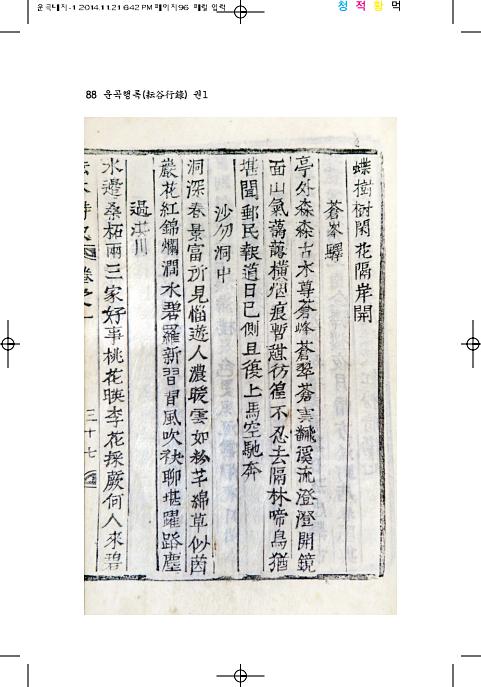 운곡내지-1 2014.11.21 6:42 PM 페이지96 매킬 입력
청 적 황 먹
88 운곡행록(耘谷行錄) 권1
蝶樹樹閑花隔岸開
蒼峯驛
亭外森森古木尊蒼峰蒼翠蒼雲飜溪流澄澄開鏡
面山氣藹藹橫烟痕暫憇彷徨不忍去隔林啼鳥猶
堪聞郵民報道日已側且復上馬空馳奔
沙勿洞中
洞深春景富所見惱遊人濃暖雲如粉芊綿草似茵
巖花紅錦爛澗水碧羅新習習風吹袂聊堪躍路塵
過淇川
水邊桑柘兩三家好事桃花暎李花採蕨何人來碧
卷之一
三十七